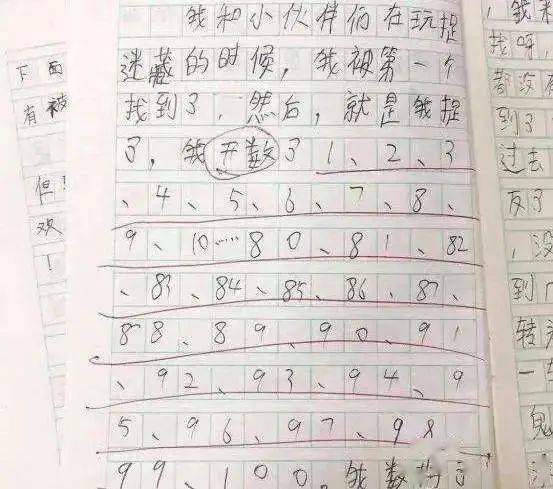 我和小伙伴们在玩捉
迷藏的时候，我被第一个
找到了，然后，就是我捉
了，我开数了1、2、3
、4、5、6、7、8、
9、10……80、81、82
、83、84、85、86、87、
88、89、90、91
、92、93、94、9
5、96、97、98
99、100，我数
下面
有被
但！
欢
！
，我
找呀，
都没
到了
过去
反了
，没
到
转
一
鬼